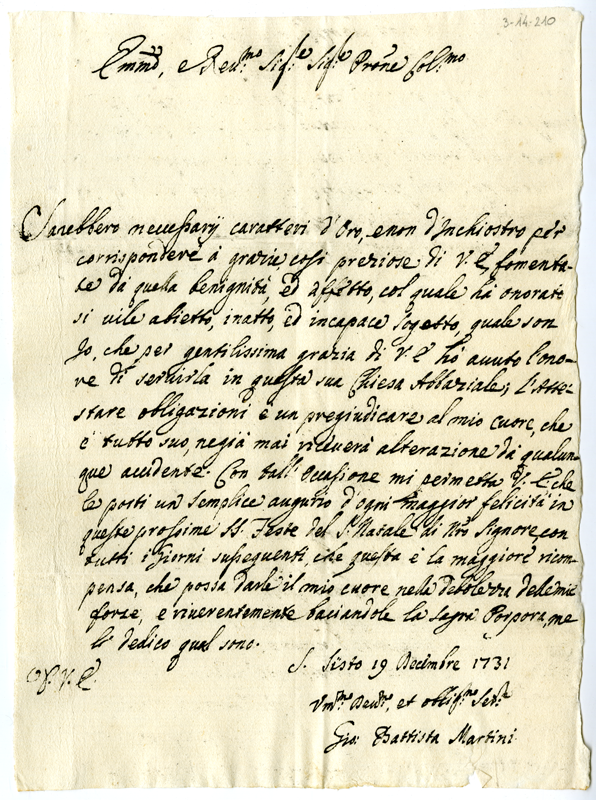 3-14-210
Emmo, e Reu.mo Sig.re Sig.re Prone Col.mo
Sarebbero necessarij caratteri d'Oro, e non d'Inchiostro per
corrispondere à grazie così preziose di V. E. fomenta-
te dà quella benignità, ed affetto, col quale hà onorato
si uile abietto, inatto, ed incapace sogetto, quale son
Io, che per gentilissima grazia di V. E. hò auuto l'ono-
re di seruirla in questa sua Chiesa Abbaziale; L'Atte-
stare obligazioni è un pregiudicare al mio cuore, che
è tutto suo, ne già mai riceuerà alterazione dà qualun-
que accidente. Con tall'occasione mi permetta V. E. che
le porti un semplice augurio d'ogni maggior felicità in
queste prossime SS. Feste del S. Natale di Nro Signore, con
tutti i Giorni susseguenti, che questa è la maggiore ricom-
pensa, che possa darle il mio cuore nella debolezza delle mie
forze, e riuerentemente baciandole la sagra Porpora, me
le dedico qual sono.
D. V. E.
S. Sisto 19 Decembre 1731
Vm.mo Deu.mo, et oblig.mo Ser.re
Gio: Battista Martini